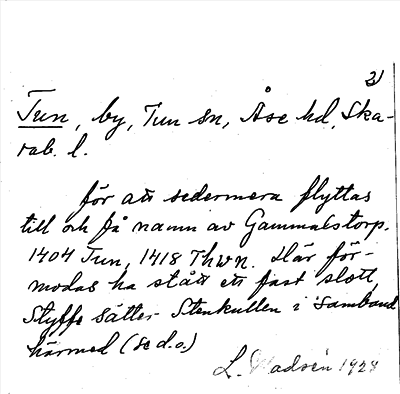 2)
Tun, by, Tun sn, Åse hd, Ska-
rab. l.
för att sedermera flyttas
till och få namn av Gammalstorp.
1404 Tun, 1418 Thwn. Här för-
modas ha stått ett fast slott,
Styffe sätter Stenkullen i samband
härmed (se d.o.)
L. 1924